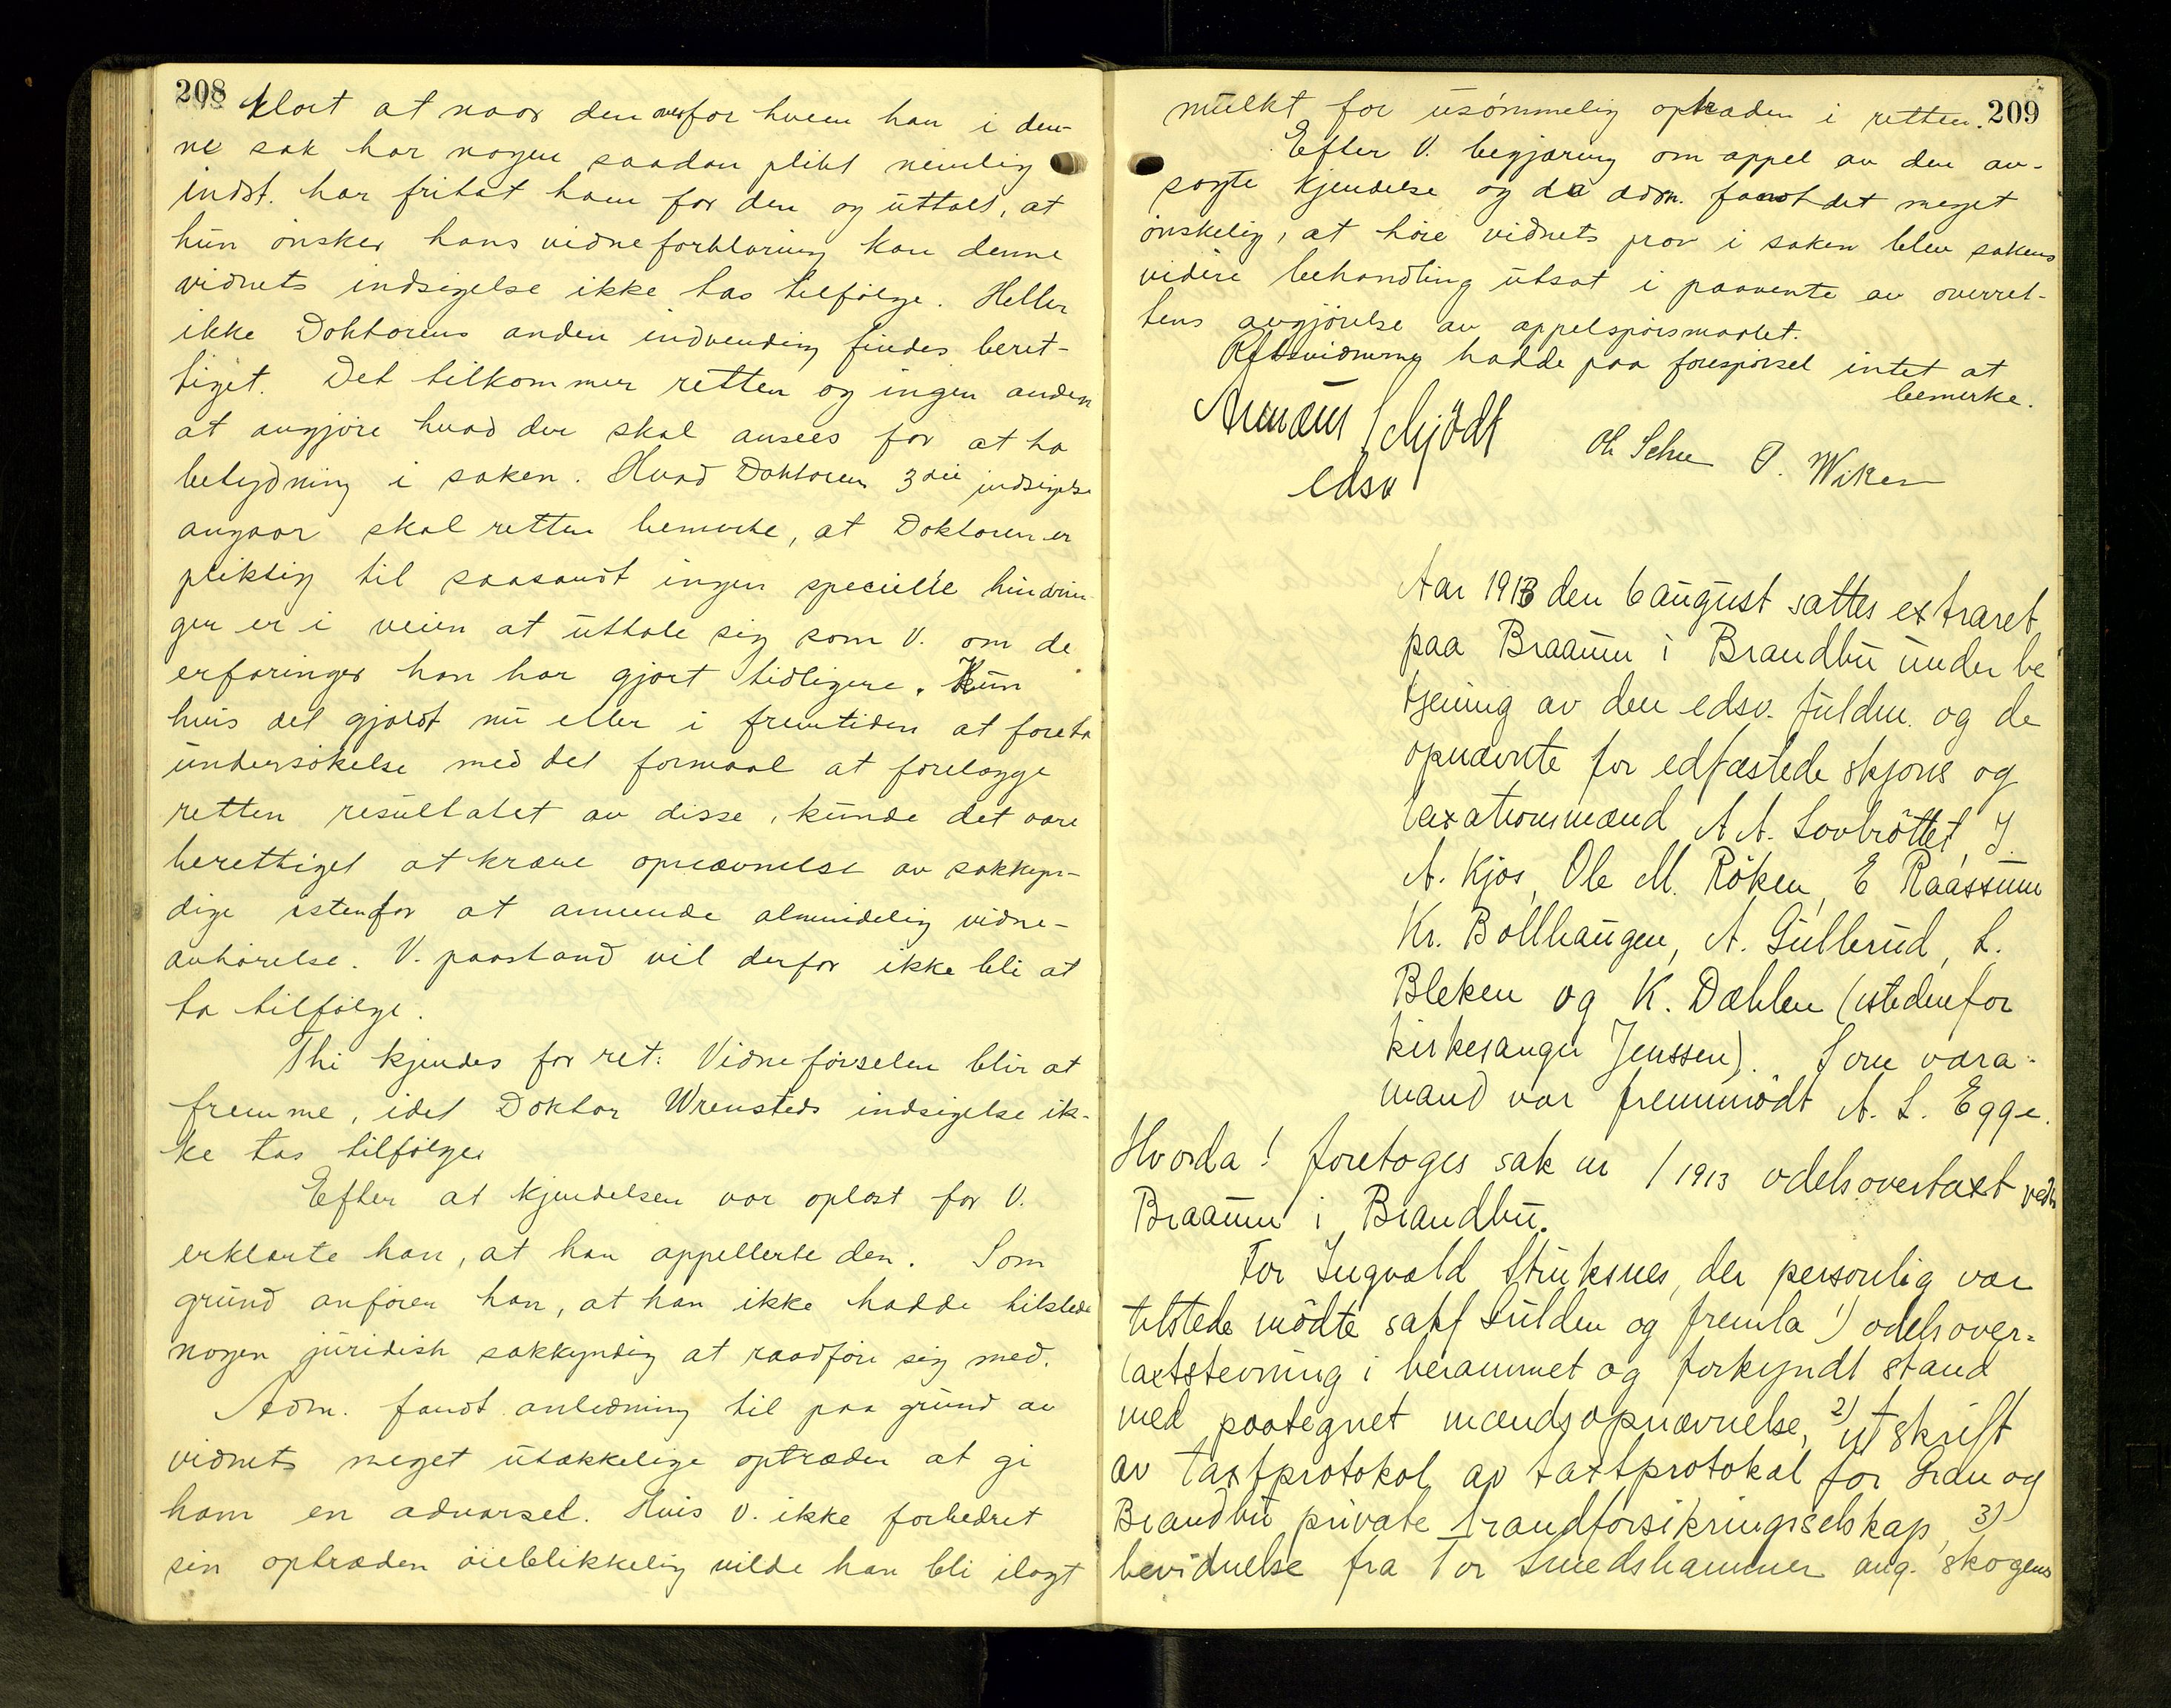 208
klart at naar den overfor hvem han i den-
ne sak har nogen saadan plikt nemlig
indst. har fritat ham for den og uttalt, at
hun ønsker hans vidneforklaring kan denne
vidnets indsigelse ikke tas tilfølge. Heller
ikke Doktorens anden indvending findes beret-
tiget. Det tilkommer retten og ingen anden
at avgjøre hvad der skal ansees for at ha
betydning i saken. Hvad Doktorens 3die indsigelse
angaar skal retten bemerke, at Doktoren er
pliktig til saasandt ingen specielle hindrin-
ger er i veien at uttale sig som V. om de
erfaringer han har gjort tidligere. Kun
hvis det gjaldt nu eller i fremtiden at foreta
undersøkelse med det formaal at forelægge
retten resultatet av disse, kunde det være
berettiget at kræve opnævnelse av sakkyn-
dige istenfor at anvende almindelig vidne-
avhørelse. V. paastand vil derfor ikke bli at
ta tilfølge.
Thi kjendes for ret: Vidneførselen blir at
fremme, idet Doktor Wrensteds indsigelse ik-
ke tas tilfølge.
Efter at kjendelsen var oplæst for V.
erklærte han, at han appellerte den. Som
grund anfører han, at han ikke hadde tilstede
nogen juridisk sakkyndig at raadføre sig med.
Adm. fandt anledning til paa grund av
vidnets meget utækkelige optræden at gi
ham en advarsel. Hvis V. ikke forbedret
sin optræden øieblikkelig vilde han bli ilagt
209
mulkt for usømmelig optræden i retten.
Efter V. begjæring om appel av den av-
sagte kjendelse og da adm. fandt det meget
ønskelig, at høre vidnets prov i saken blev sakens
videre behandling utsat i paavente av overret-
tens avgjørelse av appelspørsmaalet.
Retsvidnerne hadde paa forespørsel intet at
bemerke.
Schjødt
edsv
P. Wiken
Aar 1913 den 6 august sattes extraret
paa Braaum i Brandbu under be
tjening av den edsv. fuldm. og de
opnævnte før edfæstede skjøns og
taxationsmænd A A. Lovbrøttet, J.
A. Kjos, Ole M. Røken, E Raassum
Kr. Bollhaugen, A. Gullerud, L.
Bleken og K. Dæhlen (istedenfor
kirkesanger Jenssen). Som vara-
mand var fremmødt A. L. Egge.
Hvorda! foretoges sak nr /1913 odelsovertaxt vedr
Braaum i Brandbu.
For Ingvald Struksnes, der personlig var
tilstede mødte sakf Gulden og fremla 1) odelsover-
taxtstevning i berammet og forkyndt stand
med paategnet mændsopnævnelse, 2) utskrift
av taxtprotokol av taxtprotokol for Gran og
Brandbu private brandforsikringsselskap, 3)
bevidnelse fra Tor Smedshammer ang. skogens